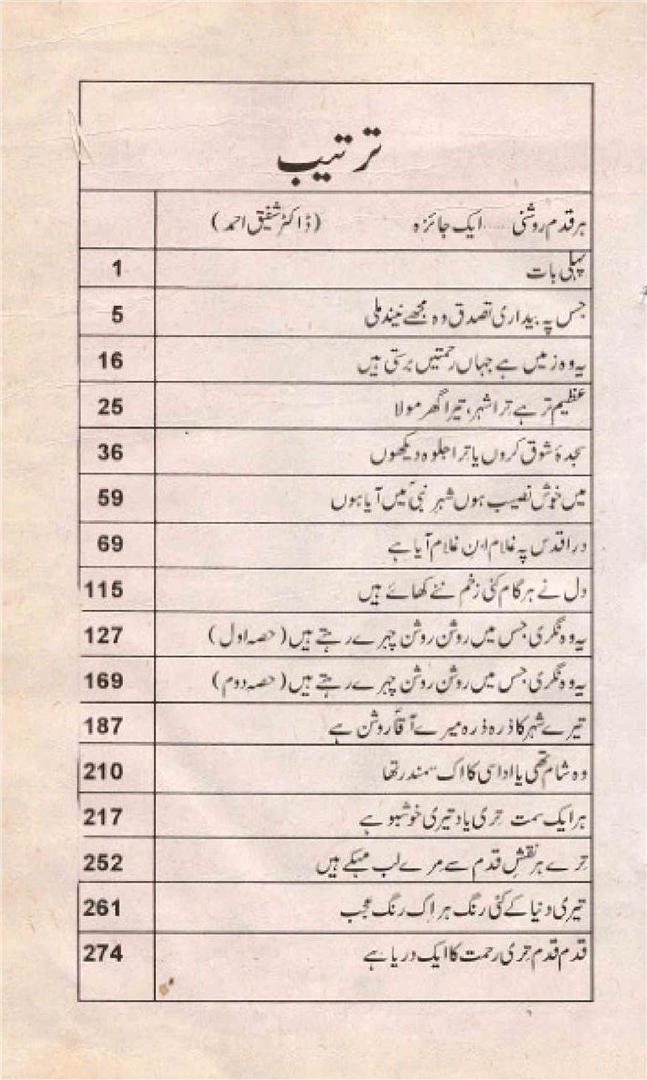 ترتیب
ہر قدم روشنی ..... ایک جائزہ (ڈاکٹر شفیق احمد)
پہلی بات 1
جس پہ بیداری تصدق وہ مجھے نیند ملی 5
یہ وہ زمیں ہے جہاں رحمتیں برستی ہیں 16
عظیم تر ہے ترا شہر، تیرا گھر مولا 25
سجدۂ شوق کروں یا ترا جلوہ دیکھوں 36
میں خوش نصیب ہوں شہرِ نبیؐ میں آیا ہوں 59
درِ اقدس پہ غلام ابن غلام آیا ہے 69
دل نے ہر گام کئی زخم نئے کھائے ہیں 115
یہ وہ نگری جس میں روشن روشن چہرے رہتے ہیں (حصہ اول) 127
یہ وہ نگری جس میں روشن روشن چہرے رہتے ہیں (حصہ دوم) 169
تیرے شہر کا ذرہ ذرہ میرے آقاؐ روشن ہے 187
وہ شام تھی یا اداسی کا اک سمندر تھا 210
ہر ایک سمت تری یاد تیری خوشبو ہے 217
ترے ہر نقشِ قدم سے مرے لب مہکے ہیں 252
تیری دنیا کے کئی رنگ ہر اِک رنگ عجب 261
قدم قدم تری رحمت کا ایک دریا ہے 274